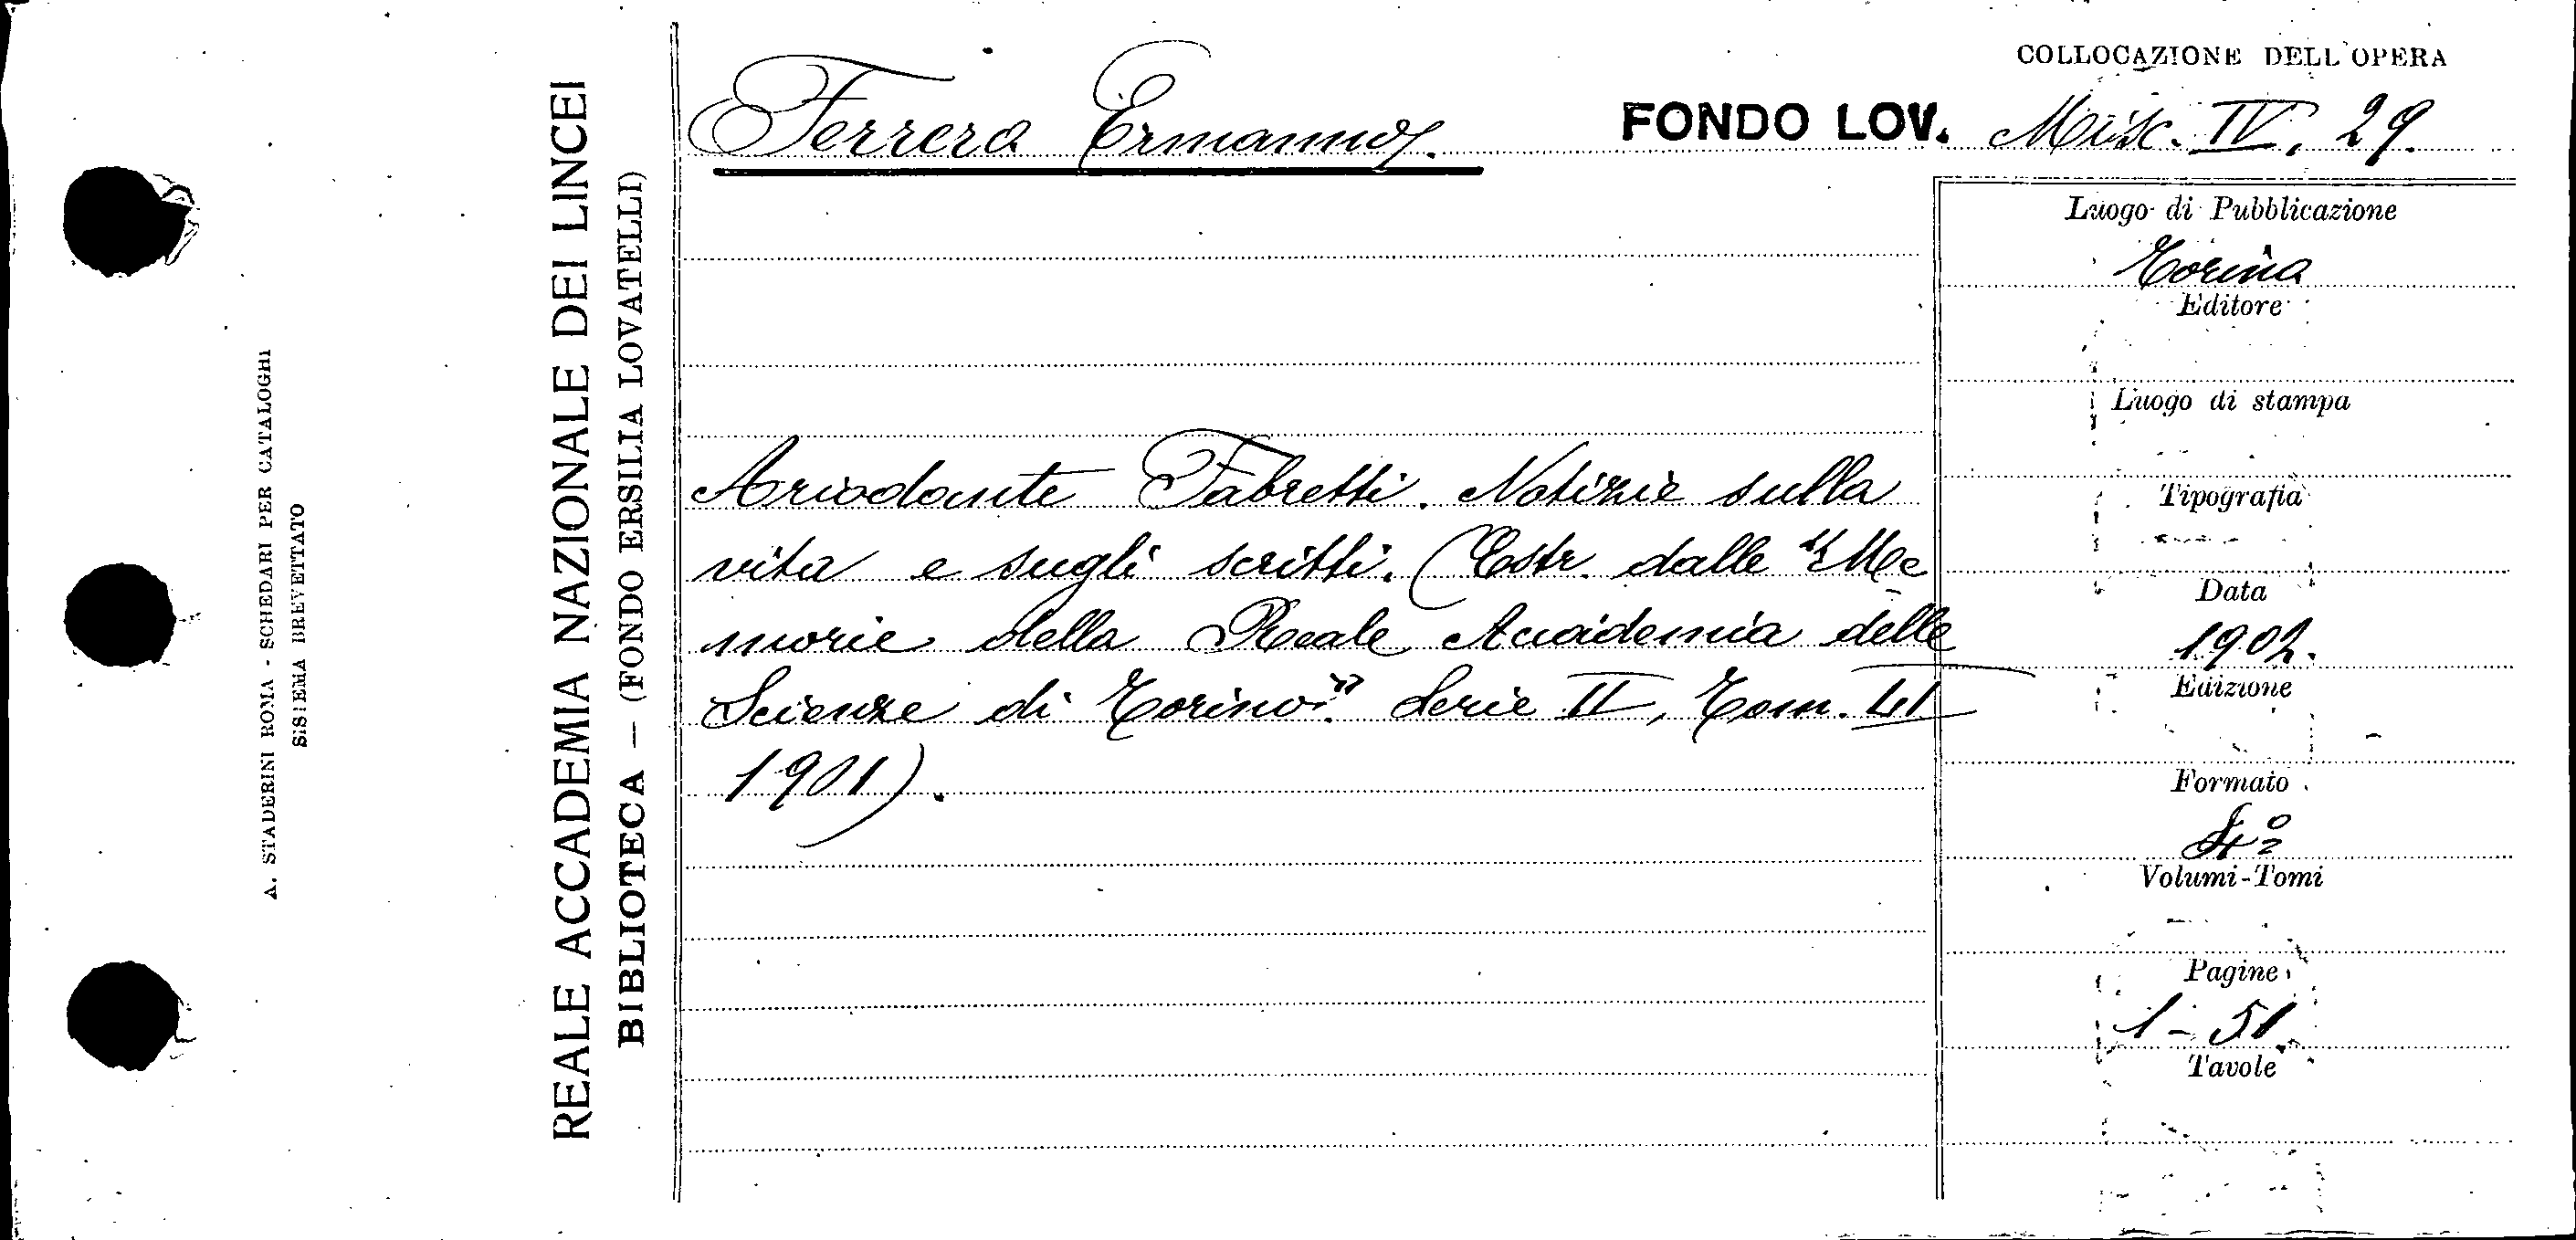 COLLOCAZIONE DELL'OPERA
Ferrero Ermanno.
FONDO LOV. Misc. IV, 29.
REALE ACCADEMIA NAZIONALE DEI LINCEI
BIBLIOTECA — (FONDO ERSILIA LOVATELLI)
A. STADERINI ROMA - SCHEDARI PER CATALOGHI
SISTEMA BREVETTATO
Ariodante Fabretti. Notizie sulla
vita e sugli scritti. (Estr. dalle "Me
morie della Reale Accademia delle
Scienze di Torino". Serie II, Tom. LI
1901).
Luogo di Pubblicazione
Torino
Editore
Luogo di stampa
Tipografia
Data
1902.
Edizione
Formato
4º
Volumi-Tomi
Pagine
1-51.
Tavole